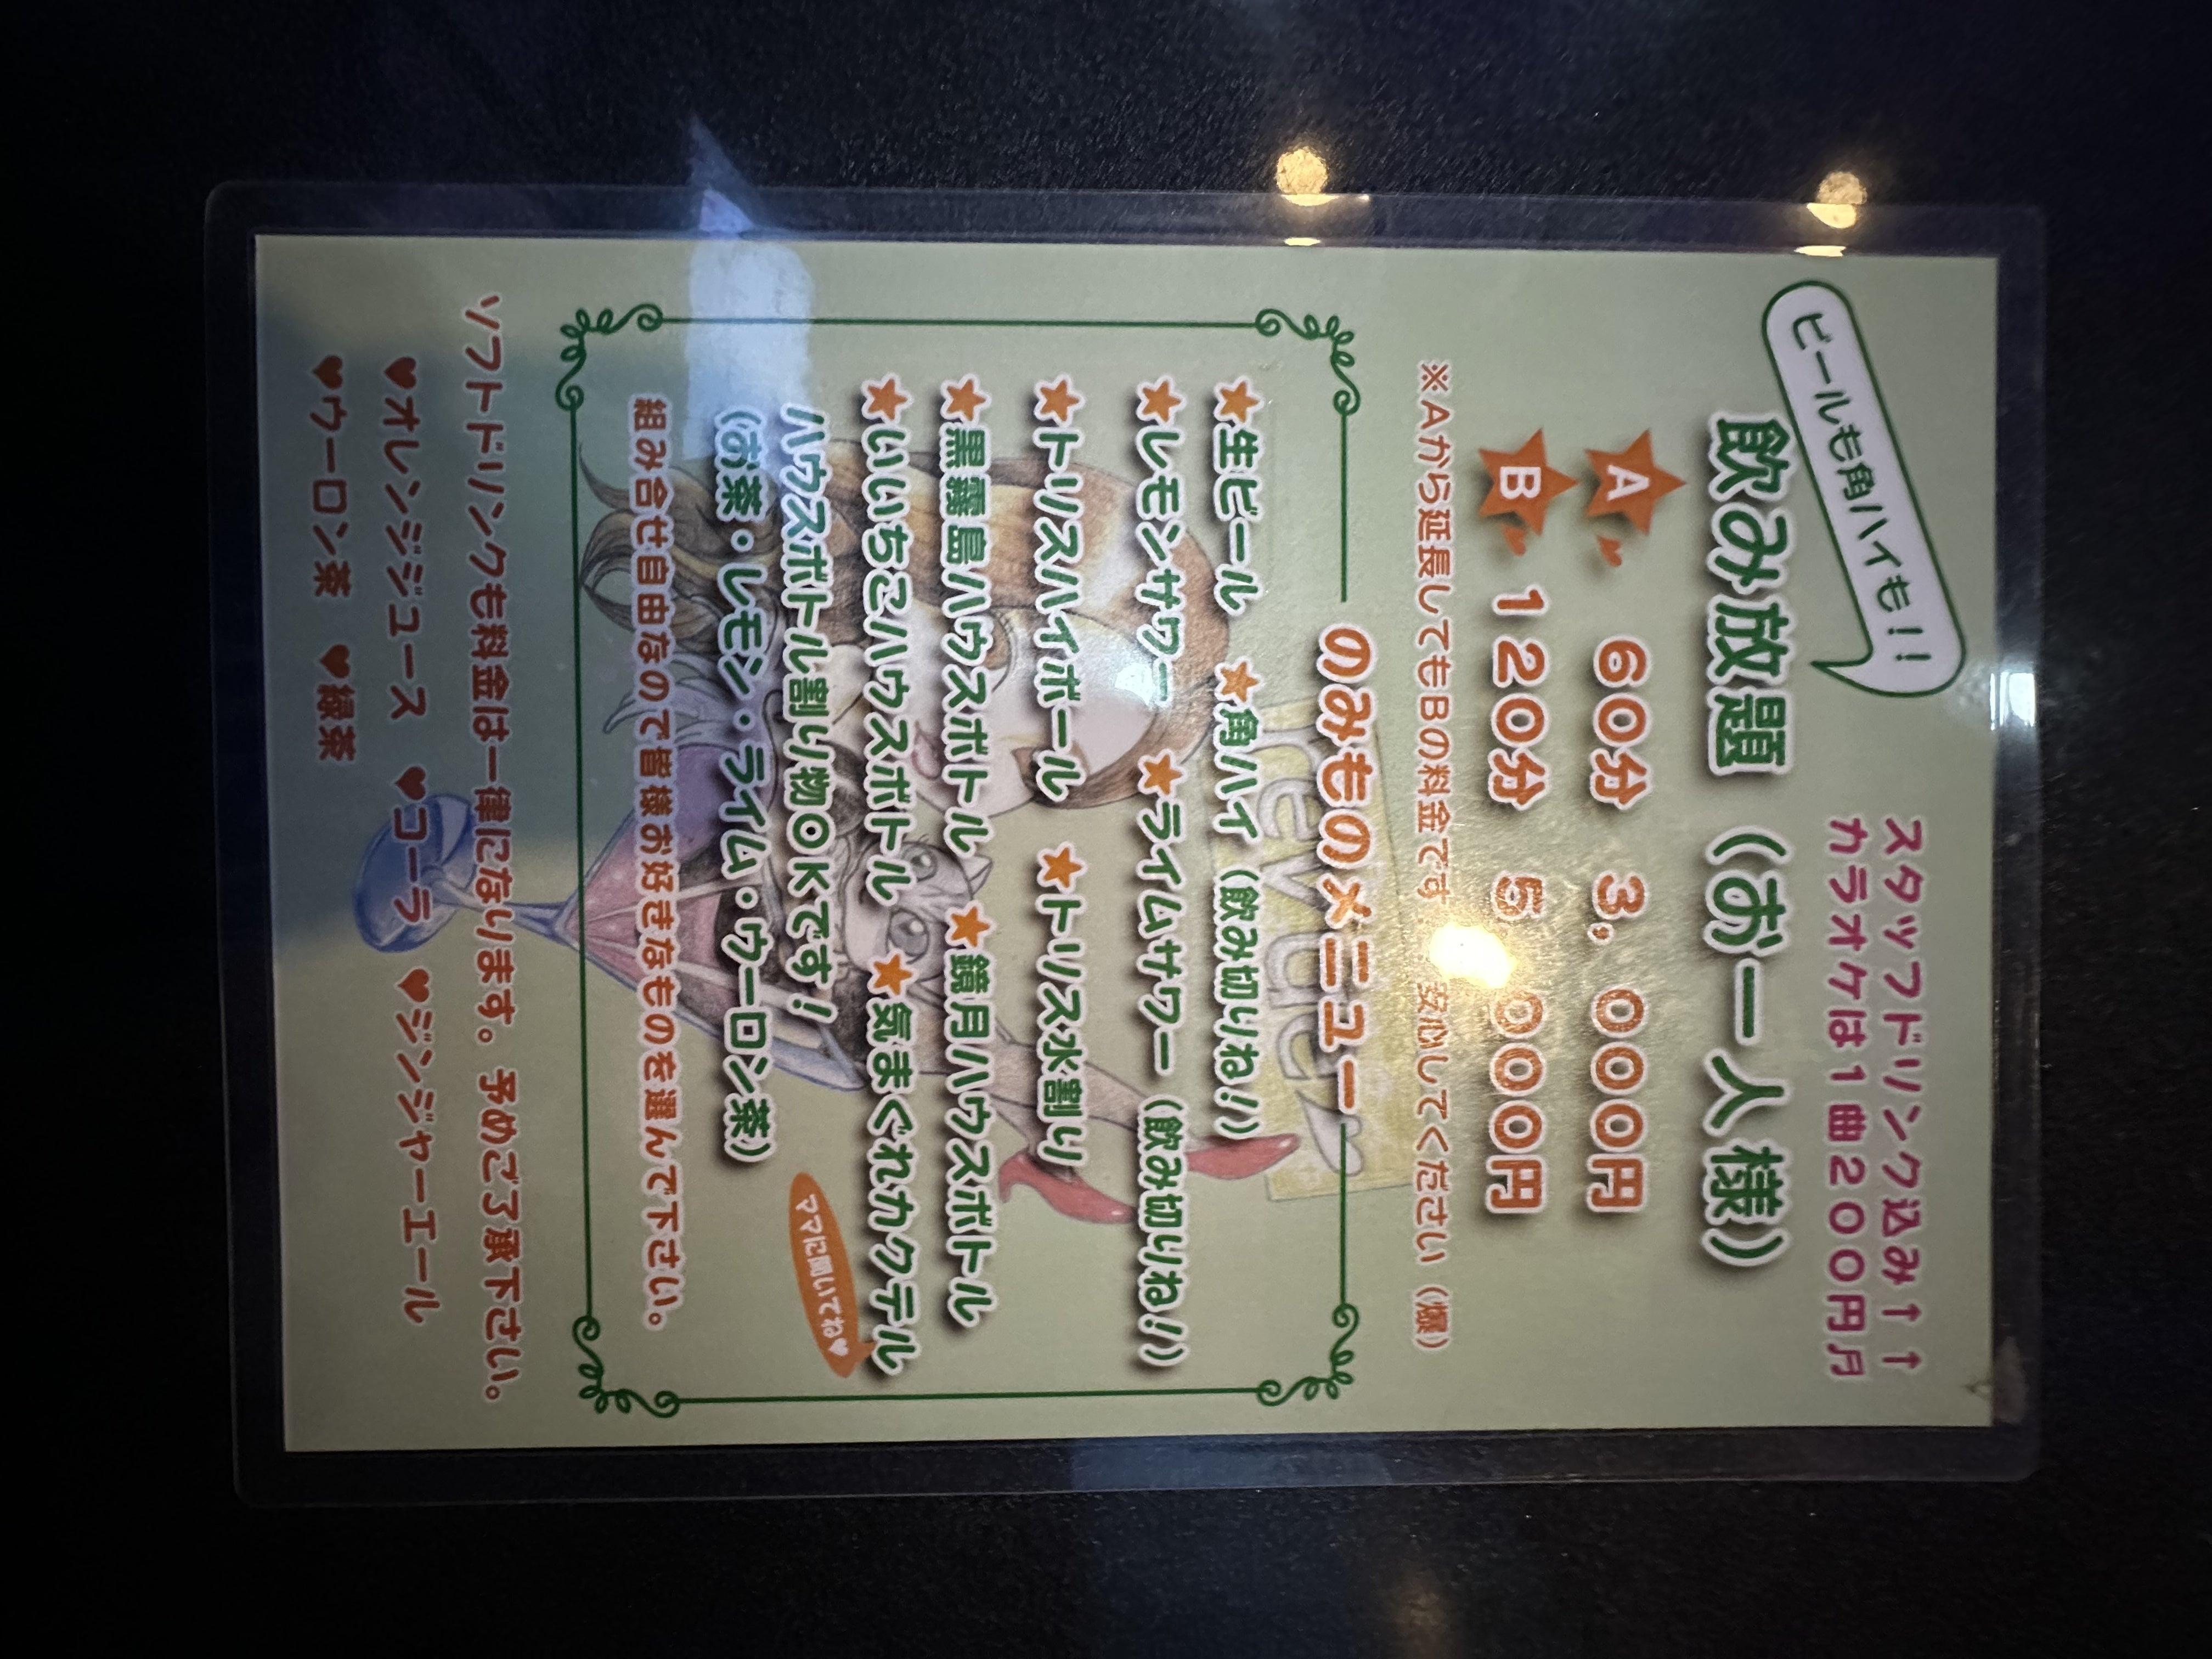 ビールも角ハイも！！
スタッフドリンク込み↑↑
カラオケは1曲200円
飲み放題（お一人様）
A 60分 3,000円
B 120分 5,000円
※Aから延長してもBの料金です 安心してください（爆）
のみものメニュー
★生ビール ★角ハイ（飲み切りね！）
★レモンサワー ★ライムサワー（飲み切りね！）
★トリスハイボール ★トリス水割り
★黒霧島ハウスボトル ★鏡月ハウスボトル
★いいちこハウスボトル ★気まぐれカクテル
ママに聞いてね♥
ハウスボトル割り物OKです！
（お茶・レモン・ライム・ウーロン茶）
組み合せ自由なので皆様お好きなものを選んで下さい。
ソフトドリンクも料金は一律になります。予めご了承下さい。
♥オレンジジュース ♥コーラ ♥ジンジャーエール
♥ウーロン茶 ♥緑茶